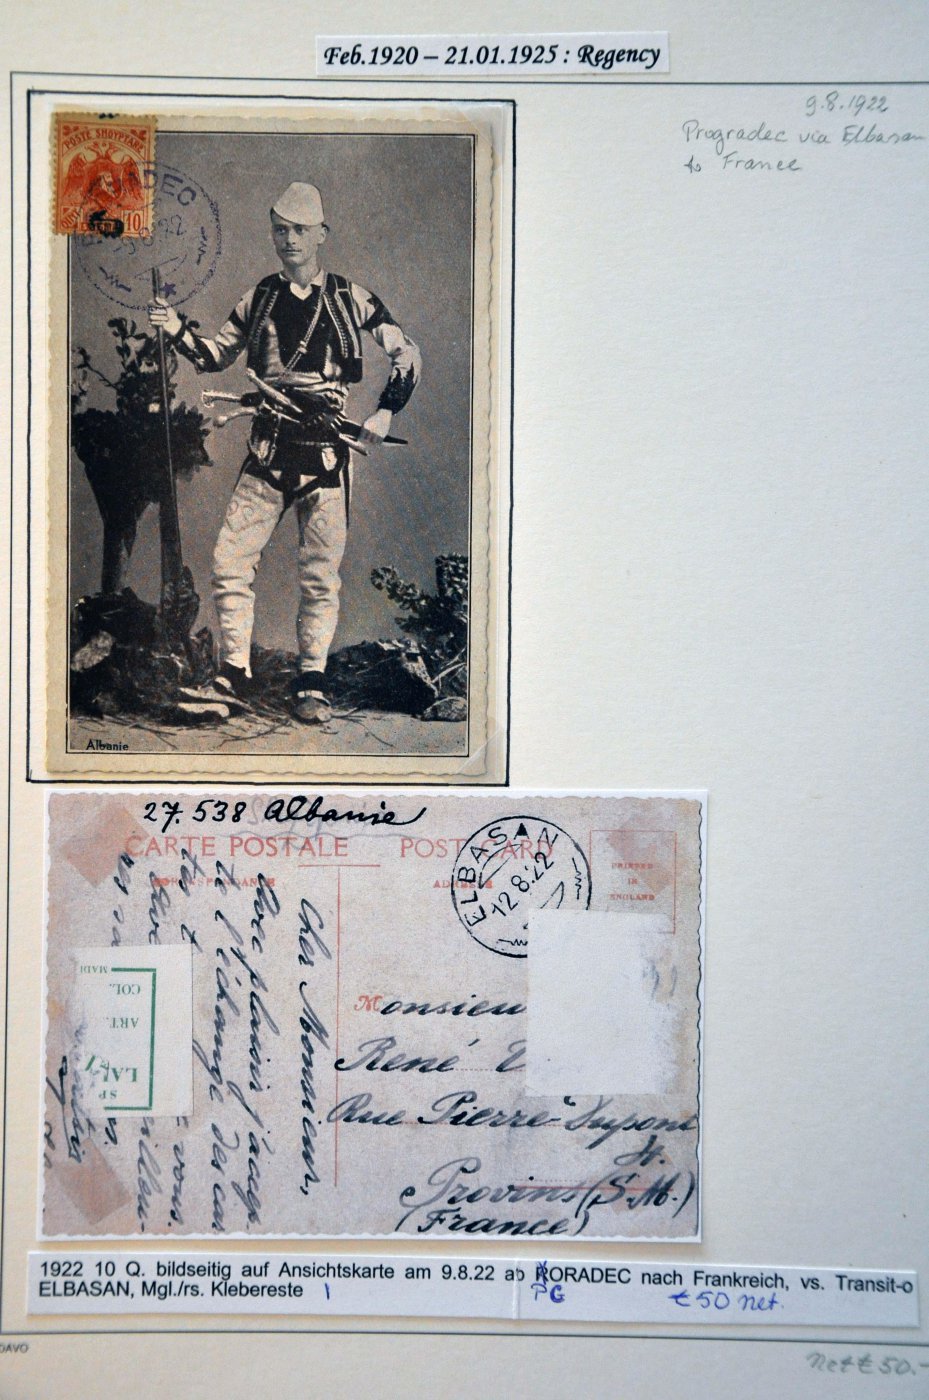 Feb.1920 – 21.01.1925 : Regency
9.8.1922
Progradec via Elbasan
to France
POSTE SHQYPTARE
10
RADEC
9.8.22
Albanie
27.538 Albanie
CARTE POSTALE POST CARD
CORRESPONDANCE
ADRESSE
PRINTED
IN
ENGLAND
ELBASAN
12.8.22
Cher Monsieur,
Avec plaisir j'accep-
te l'échange des car
tes
vous.
Monsieur
René
Rue Pierre-Dupont
Provins (S.M.)
(France)
MADE
COL.
ART.
LAI
SP
1922 10 Q. bildseitig auf Ansichtskarte am 9.8.22 ab RORADEC nach Frankreich, vs. Transit-o
ELBASAN, Mgl./rs. Klebereste
PG
€50 net.
DAVO
Net € 50.-